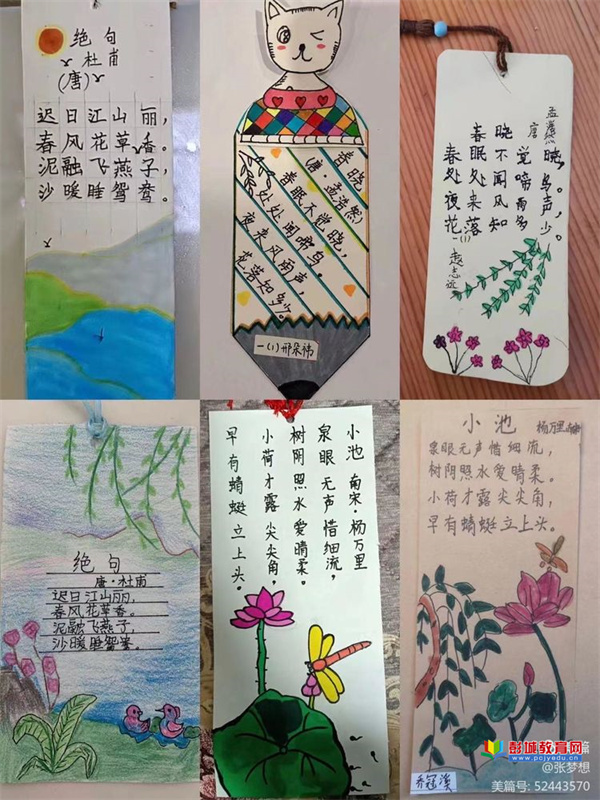 绝句
杜甫
(唐)
迟日江山丽,
春风花草香。
泥融飞燕子,
沙暖睡鸳鸯。
春晓
(唐·孟浩然)
春眠不觉晓,
处处闻啼鸟,
夜来风雨声,
花落知多少。
一(1)邢朵祎
春晓
唐 孟浩然
春眠不觉晓,
处处闻啼鸟。
夜来风雨声,
花落知多少。
一(1)赵志远
绝句
唐·杜甫
迟日江山丽,
春风花草香。
泥融飞燕子,
沙暖睡鸳鸯。
小池 南宋·杨万里
泉眼无声惜细流,
树阴照水爱晴柔。
小荷才露尖尖角,
早有蜻蜓立上头。
小池
杨万里
泉眼无声惜细流,
树阴照水爱晴柔。
小荷才露尖尖角,
早有蜻蜓立上头。
彭城教育网
@张梦想
美篇号: 52443570